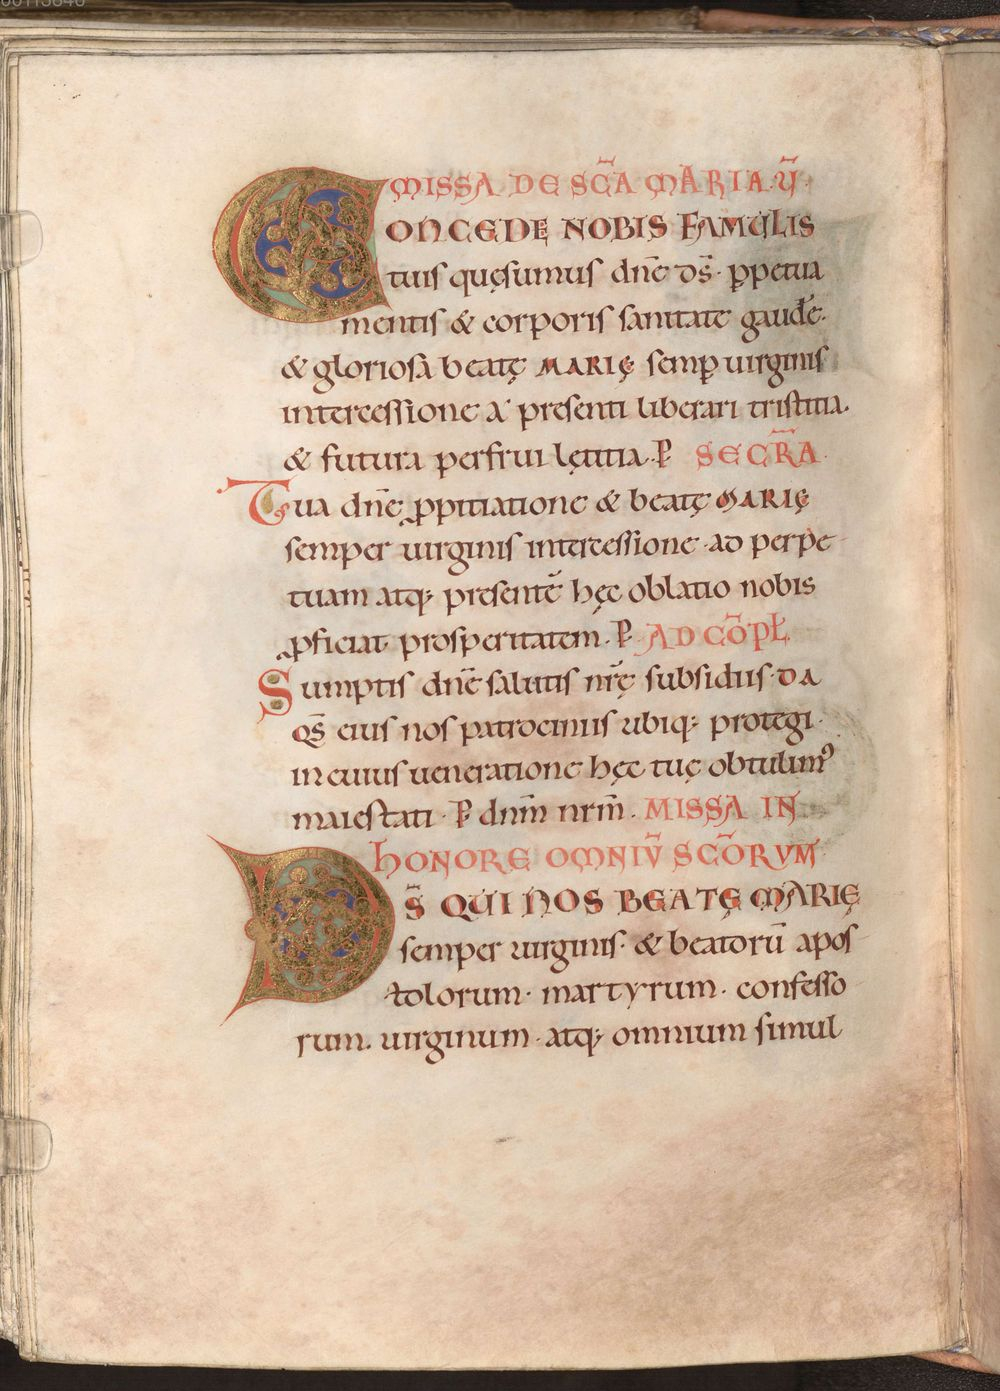 MISSA DE SC̄A MARIA·V̄
CONCEDE NOBIS FAMULIS
tuis quęsumus dn̄e ds̄· ꝑpetua
mentis & corporis sanitate gaudēr·
& gloriosa beatę MARIĘ semꝑ uirginis
intercessione a presenti liberari tristitia·
& futura perfrui lętitia·P̄ SECR̄A
Tua dn̄e ꝓpitiatione & beatę MARIĘ
semper uirginis intercessione· ad perpe
tuam atq; presentē hęc oblatio nobis
ꝓficiat prosperitatem·P̄ AD CŌPL̄
Sumptis dn̄e salutis nr̄ę subsidiis· da
qs̄ eius nos patrociniis ubiq; protegi·
in cuius ueneratione hęc tuę obtulimꝰ
maiestati· P̄ dnm̄ nrm̄. MISSA IN
HONORE OMNIŪ SC̄ORVM
DS̄ QUI NOS BEATĘ MARIĘ
semper uirginis· & beatorū apos
tolorum· martyrum· confesso
rum. uirginum· atq; omnium simul